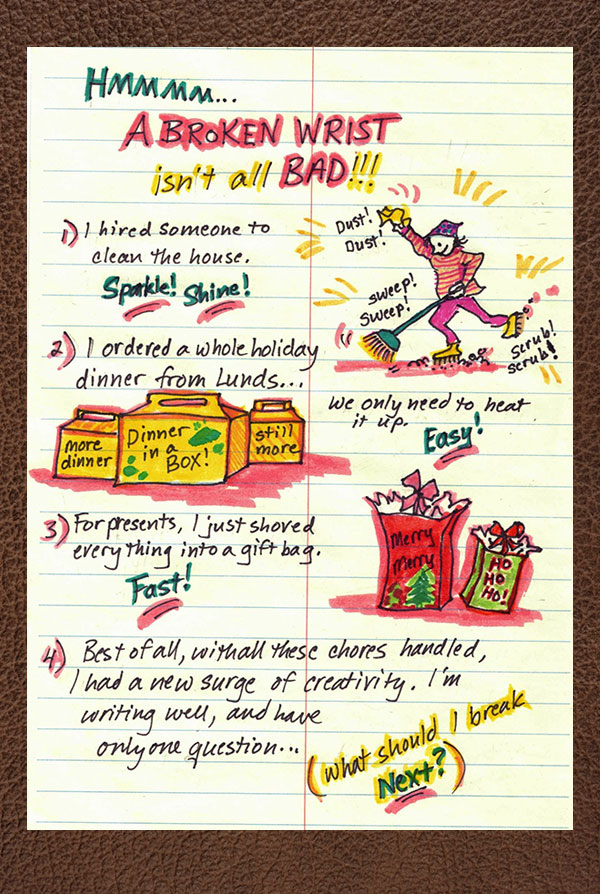 HMMMMM...
A BROKEN WRIST
isn't all BAD!!!
1) I hired someone to
clean the house.
Sparkle! Shine!
Dust!
Dust!
Sweep!
Sweep!
Scrub!
Scrub!
2) I ordered a whole holiday
dinner from Lunds...
more
dinner
Dinner
in a
BOX!
still
more
We only need to heat
it up.
Easy!
3) For presents, I just shoved
everything into a gift bag.
Fast!
Merry
Merry
HO
HO
HO!
4) Best of all, with all these chores handled,
I had a new surge of creativity. I'm
writing well, and have
only one question...
(What should I break
Next?)